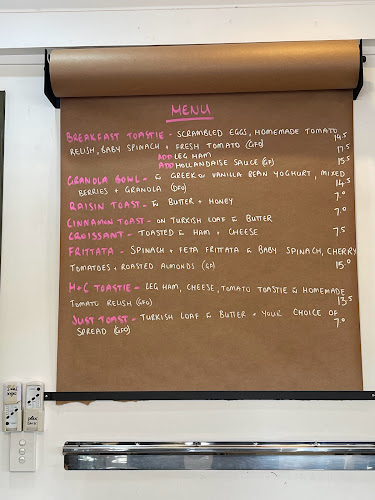 MENU
BREAKFAST TOASTIE - SCRAMBLED EGGS, HOMEMADE TOMATO
RELISH, BABY SPINACH + FRESH TOMATO (GFO) 14.5
ADD LEG HAM 17.5
ADD HOLLANDAISE SAUCE (GF) 15.5
GRANOLA BOWL - GREEK OR VANILLA BEAN YOGHURT, MIXED
BERRIES + GRANOLA (DFO) 14.5
RAISIN TOAST - BUTTER + HONEY 7.0
CINNAMON TOAST - ON TURKISH LOAF BUTTER 7.0
CROISSANT - TOASTED HAM + CHEESE 7.5
FRITTATA - SPINACH + FETA FRITTATA BABY SPINACH, CHERRY
TOMATOES + ROASTED ALMONDS (GF) 15.0
H+C TOASTIE - LEG HAM, CHEESE, TOMATO TOASTIE HOMEMADE
TOMATO RELISH (GFO) 13.5
JUST TOAST - TURKISH LOAF BUTTER + YOUR CHOICE OF
SPREAD (GFO) 7.0